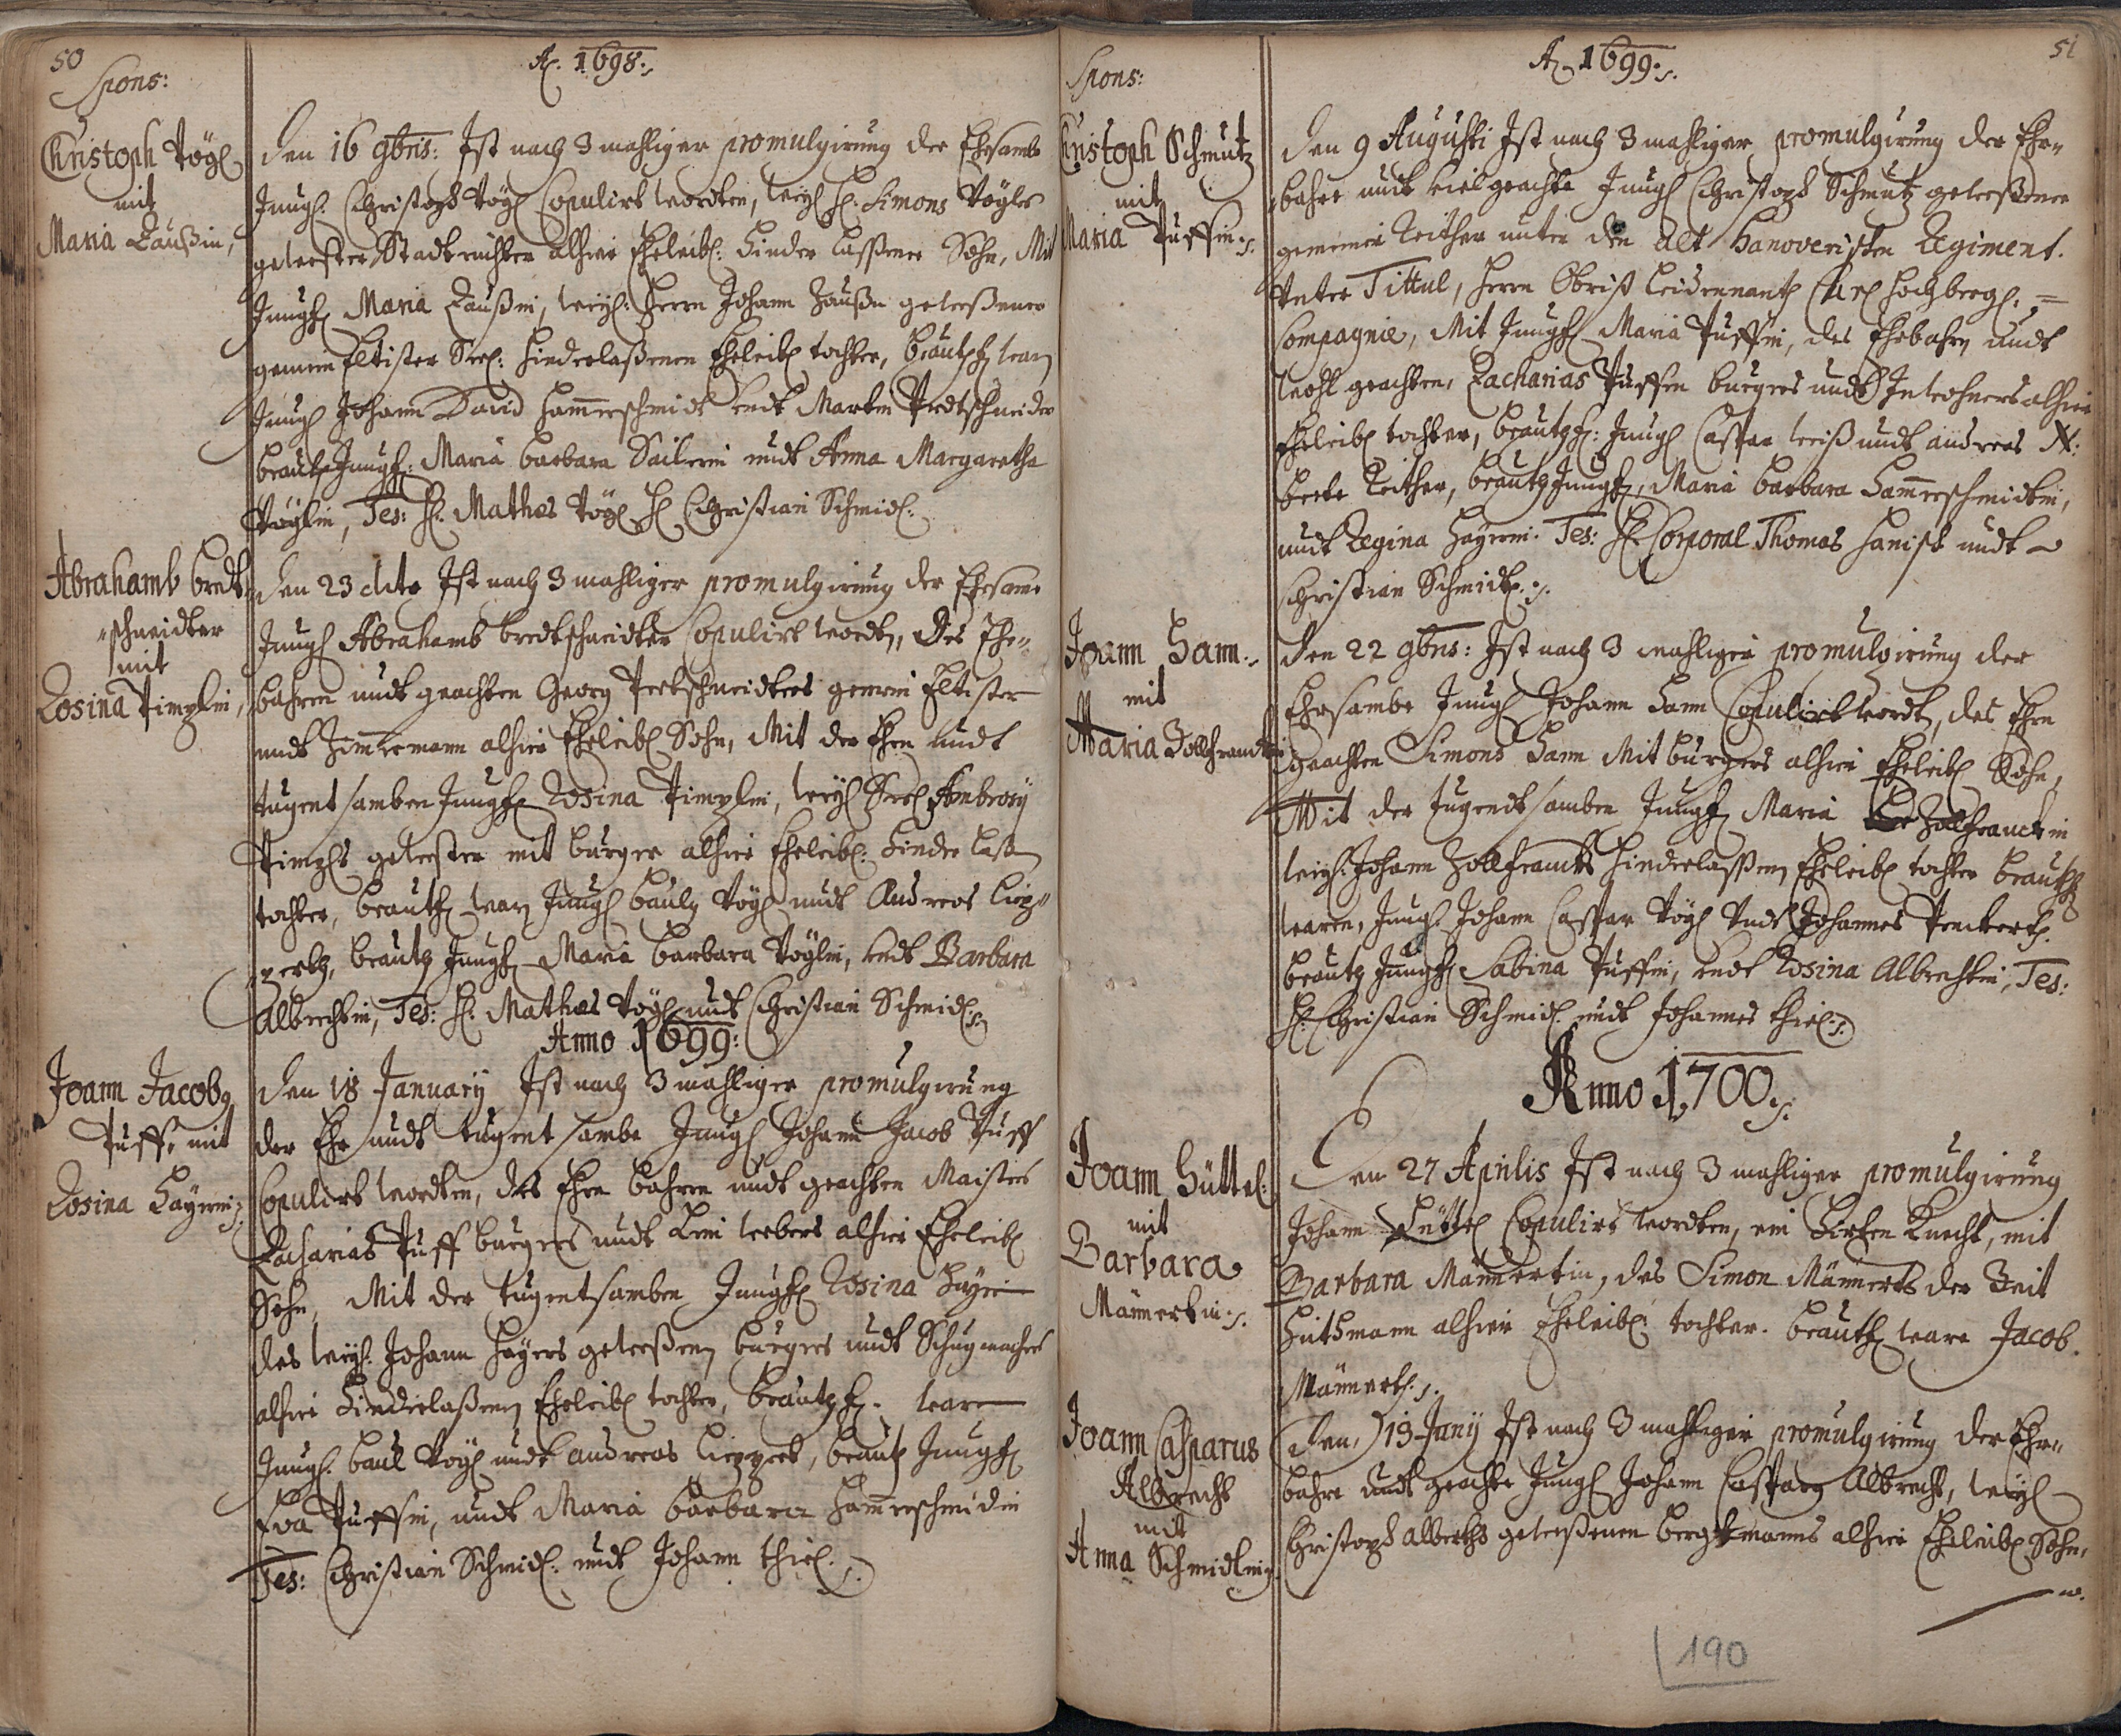 50
Spons:
A. 1698.
Christoph Vögl
mit
Maria Zaußin,
Den 16 9bris: Ist nach 3 mahliger promulgirung der Ehrsambe
Jungl. Christoph Vögl Copulirt wordten, weyl H. Simons Vögls
gewester Stadtrichter alhier Eheleibl: hinder lassener Sohn, Mit
Jungf Maria Zaußin, weyl: Herrn Johann Zaußn geweßener
gemein Eltister Seel: hinderlaßenen Eheleibl tochter, Beautf warn
Jungl Johann David Hamerschmidt undt Martin Predtschneider
beautJungf: Maria Barbara Sailerin undt Anna Margaretha
Vöglin, Tes: H. Mathes Vögl H Christian Schmidl.
Abrahamb bredt
schneidter
mit
Rosina Pimplin,
Den 23 dito Ist nach 3 mahliger promulgirung der Ehrsame
Jungl Abrahamb bredtschneidter Copulirt wordten, Des Ehr-
bahren undt geachten Georg Pretschneidters gemein Eltister
undt Zimmermann alhier Eheleibl Sohn, Mit der Ehrn undt
tugent samben Jungf Rosina Pimplin, weyl Seel Ambrosy
Pimpls gewester mit burger alhier Eheleibl: hinder laßn
tochter, beautf warn Jungl Vögl undt Andreas
beautJungf Maria Barbara Vöglin, undt Barbara
Albrechtin, Tes: H. Mathes Vögl undt Christian Schmidl.
Anno 1699:
Joann Jacob
Puff, mit
Rosina Hayrin
Den 18 January Ist nach 3 mahliger promulgirung
der Ehr undt tugent sambe Jungl Johann Jacob Puff
Copulirt wordten, des Ehrn bahren undt geachten Maisters
Zacharias Puff burgers undt Lein webers alhier Eheleibl
Sohn, Mit der tugentsamben Jungf Rosina Hayrin
des weyl. Johann Hayers geweßenen burgers undt Schuhmachers
alhier hinderlaßenen Eheleibl tochter, beautf. waren
Jungl. Paul Vögl undt Andreas, beaut Jungf
Eva Puffin, undt Maria barbara Hamerschmidin
Tes: Christian Schmidl: undt Johann Thiel.
51
Spons:
A. 1699.
Christoph Schmutz
mit
Maria Puffin.
Den 9 Augusti Ist nach 3 mahliger promulgirung der Ehr-
bahre undt viel geachte Jungl Christoph Schmutz geweßener
gemeiner Reither unter den Alt Hanoverisch Regiment.
Unter Tittul, Herrn Obrist Leidennant Carl Hochbergl.
Compagnie, Mit Jungf Maria Puffin, des Ehrbahrn undt
wohl geachten, Zacharias Puffen burgers undt Inwohners alhier
Eheleibl tochter, beautf: Jungl Caspar weiß undt Andreas N:
beete Reither, beautJungf, Maria barbara Hamerschmidtin,
undt Regina Hayrin. Tes: H. Corporal Thomas Hanisch undt
Christian Schmidt.
Joann Hann.
mit
Maria Zollfranckin
Den 22 9bris: Ist nach 3 mahliger promulgirung der
Ehrsambe Jungl Johann Hann Copulirt wordt, des Ehrn
geachten Simons Hann Mit burgers alhier Eheleibl Sohn,
Mit der tugendt samben Jungf Maria Zollfranckin
weyl. Johann Zollfrancks hinderlassenen Eheleibl tochter beautf
waren, Jungl. Johann Caspar Vögl Undt Johannes
beautJungf Sabina Puffin, undt Rosina Albrechtin, Tes:
H. Christian Schmidl. undt Johannes Thiel.
Anno 1700.
Joann Hüttel
mit
Barbara
Männertin.
Den 27 Aprilis Ist nach 3 mahliger promulgirung
Johann Hüttl Copulirt wordten, ein Hirten Knecht, mit
Barbara Männertin, des Simon Männerts der Zeit
Huthmann alhier Eheleibl: tochter. beautf ware Jacob.
Männert.
Joann Casparus
Albrecht
mit
Anna Schmidlin
Den 13 Juny Ist nach 3 mahliger promulgirung der Ehr-
bahre undt geachte Jungl Johann Caspar Albrecht, weyl
Christoph Albrechts geweßenen bergkmanns alhier Eheleibl Sohn,
190